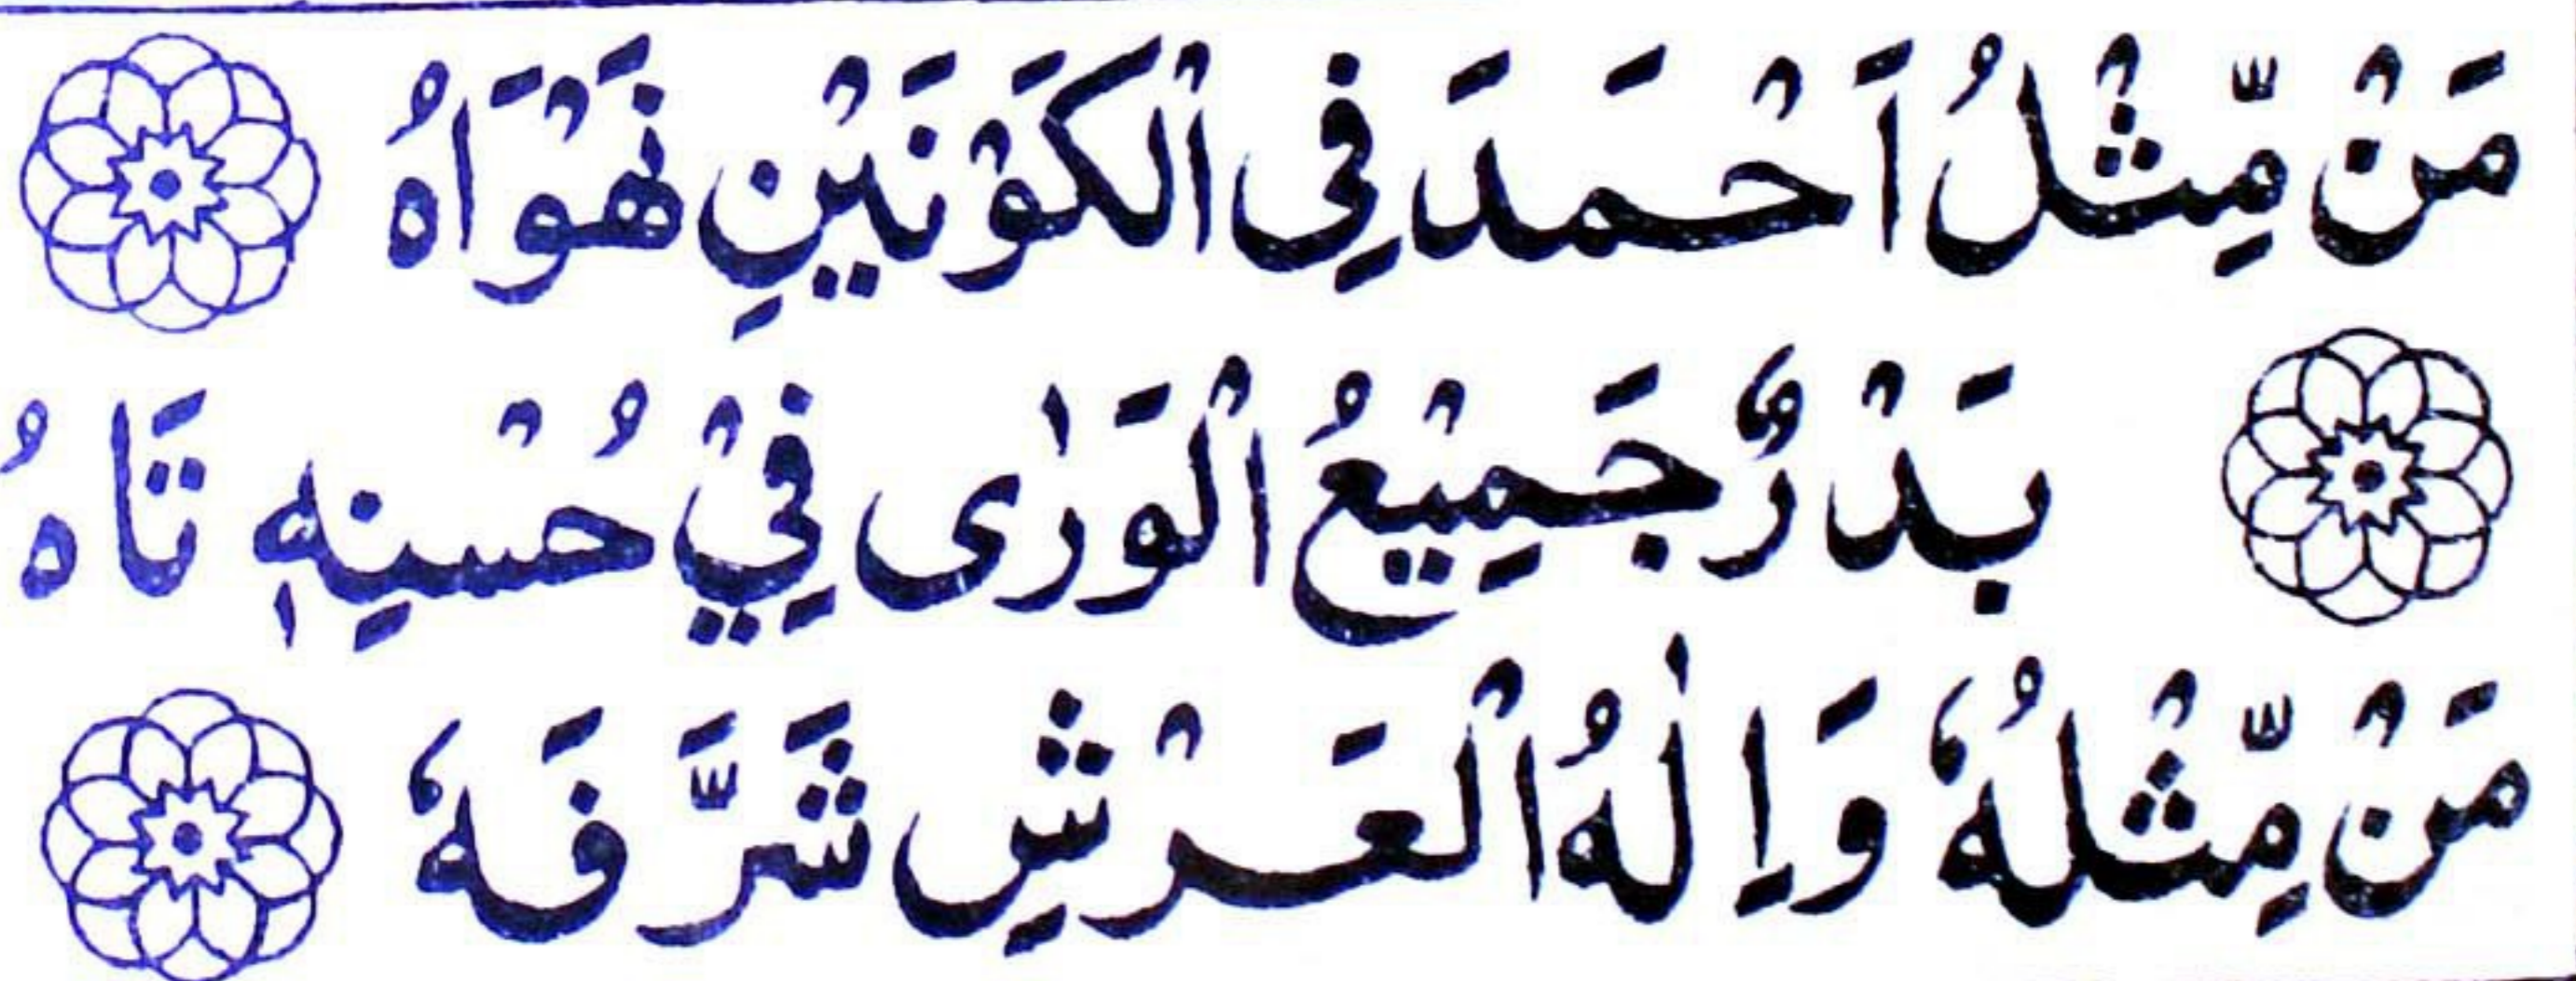 مَنْ مِّثْلُ اَحْمَدَ فِى الْكَوْنَيْنِ نَهْوَاهُ
بَدْرٌ جَمِيْعُ الْوَرٰى فِيْ حُسْنِهٖ تَاهُ
مَنْ مِّثْلُهٗ وَاِلٰهُ الْعَرْشِ شَرَّفَهٗ